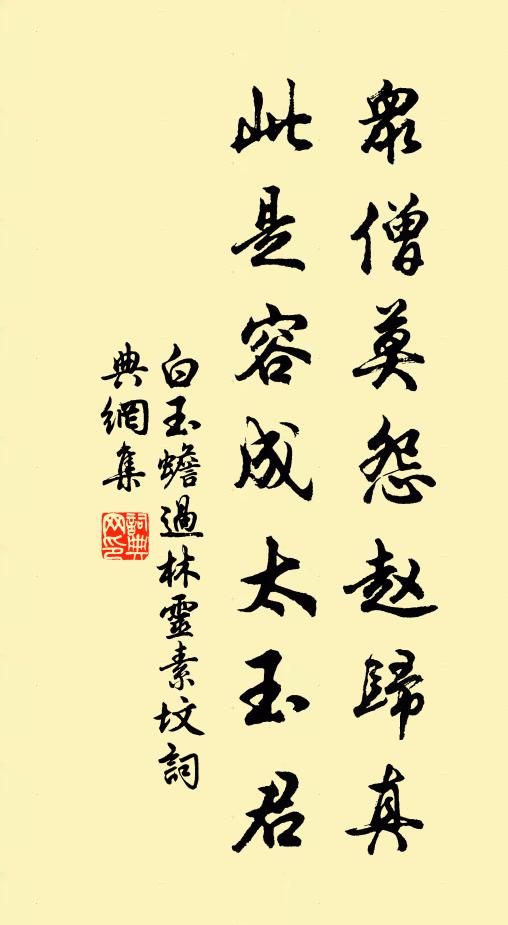 眾僧莫怨赵歸真
此是容成太玉君
白玉蟾過林靈素墳詞
典網集
詞典
网印